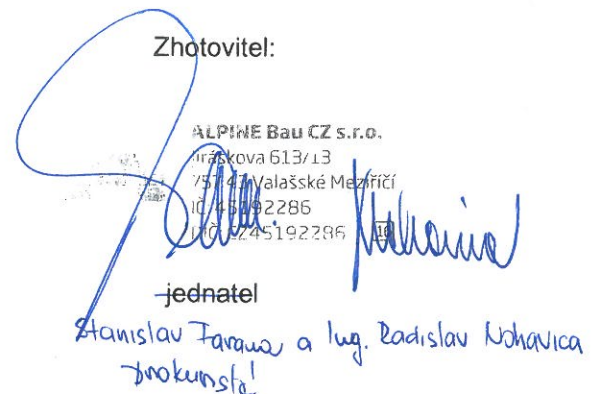 Zhotovitel:
ALPINE Bau CZ s.r.o.
Jiráskova 613/13
757 43 Valašské Meziříčí
IČ 45192286
DIČ CZ45192286 10
jednatel
Stanislav a Ing. Radislav Nohavica
prokuristé